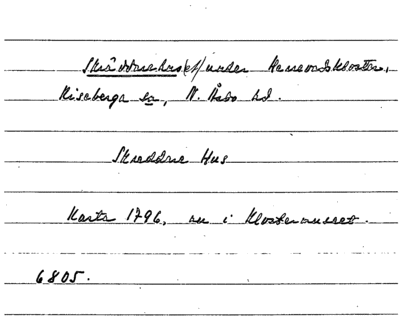 Skräddarehus(et) under Herrevadskloster,
Riseberga sn, N. Åsbo hd.
Skraddare Hus
Karta 1796, nu i Klostermuseet.
6805.